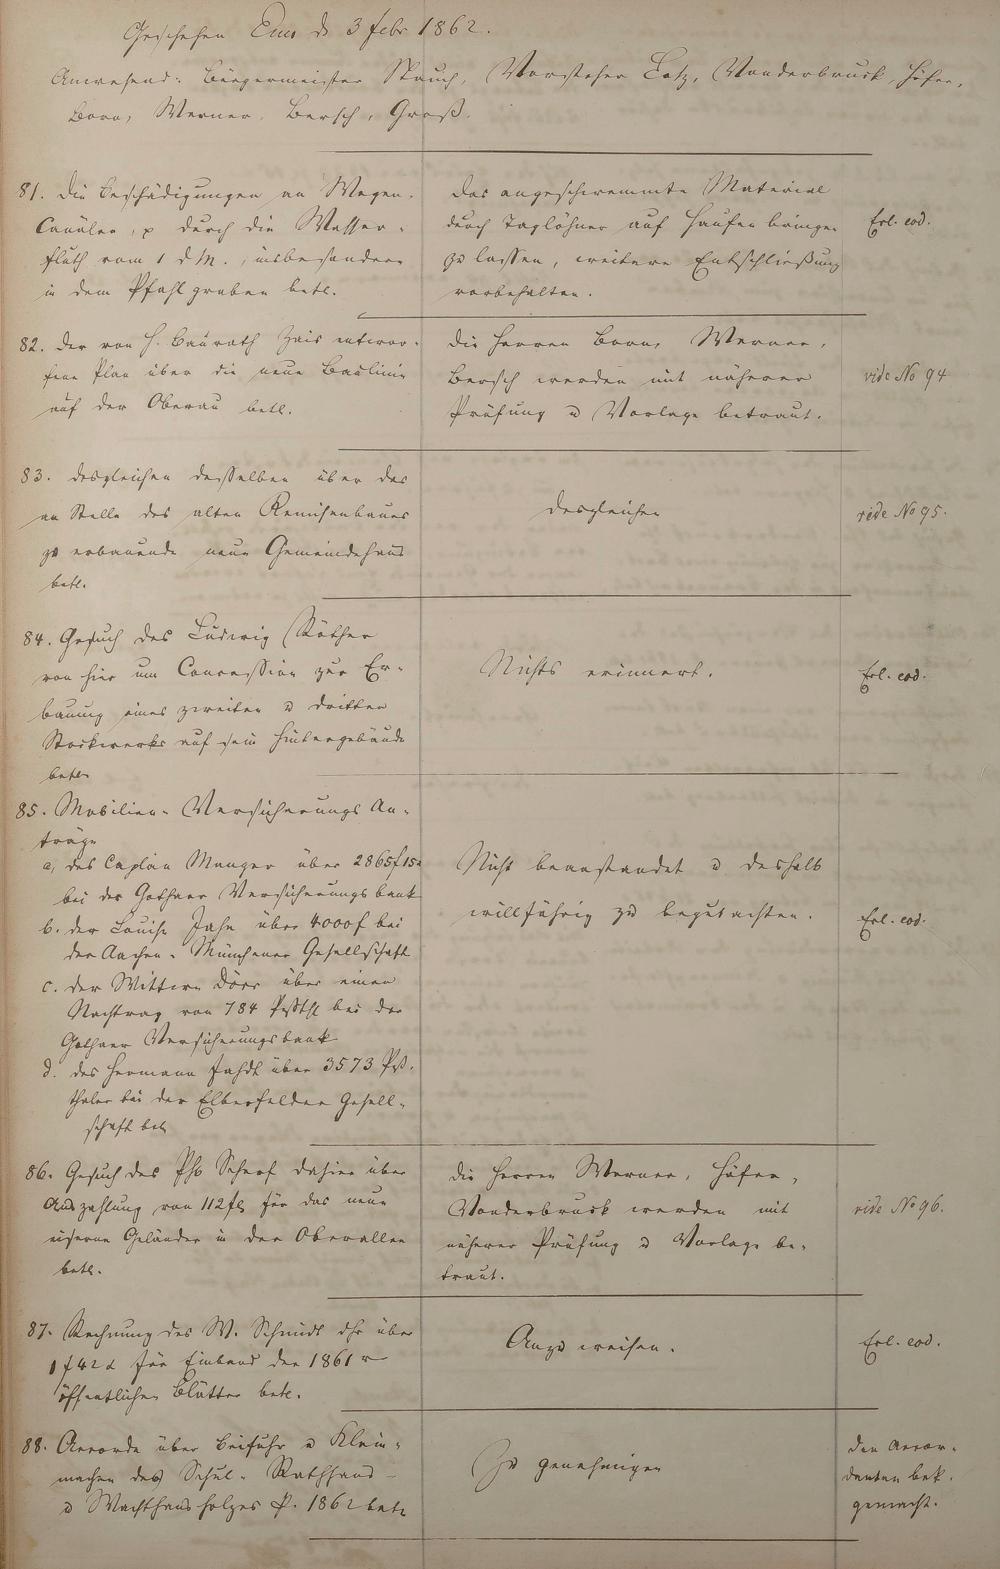 Geschehen Ems d 3 febr 1862.
Anwesend: Bürgermeister Spauch, Vorsteher Lotz, Vonderbruck, Höfer,
Born, Werner, Bersch, Groß.
81. die Beschädigungen an Wegen,
Canälen, p durch die Wasser-
fluth vom 1 d M., insbesondere
in dem Pfahlgraben betr.
das angeschwemmte Material
durch Taglöhner auf Haufen bringen
zu lassen, weitere Entschließung
vorbehalten.
Erl. eod.
82. der von H. Baurath Zais entwor-
fene Plan über die neue Baulinie
auf der Oberau betr.
die Herren Born, Werner,
Bersch werden mit näherer
Prüfung u Vorlage betraut.
vide No 94
83. desgleichen desselben über das
an Stelle des alten Remisenbaues
zu erbauende neue Gemeindehaus
betr.
desgleichen
vide No 95.
84. Gesuch des Ludwig Käther
von hier um Concession zur Er-
bauung eines zweiten u dritten
Stockwerks auf sein Hintergebäude
betr
Nichts erinnert.
Erl. eod.
85. Mobilien-Versicherungs An-
träge
a, des Caplan Manger über 2865f 15x
bei der Gothaer Versicherungsbank
b. der Louise Jahn über 4000f bei
der Aachen-Münchener Gesellschaft
c. der Wittwe Dörr über einen
Nachtrag von 784 Prßthl bei der
Gothaer Versicherungsbank
d. des Hermann Fahdt über 3573 Pß.
thaler bei der Elberfelder Gesell-
schaft betr
Nicht beanstandet u deshalb
willfährig zu begutachten.
Erl. eod.
86. Gesuch des Phs Scherf dahier über
Auszahlung von 112 fl für das neue
eiserne Geländer in der Oberallee
betr.
die Herren Werner, Höfer,
Vonderbruck werden mit
näherer Prüfung u Vorlage be-
traut.
vide No 96.
87. Rechnung des W. Schmidt dhr über
1 f 42 x für Einband der 1861 r
öffentlichen Blätter betr.
Anzuweisen.
Erl. eod.
88. Accorde über Beifuhr u Klein-
machen des Schul- Rathhaus-
u Wachthausholzes p. 1862 betr
Zu genehmigen
den Accor-
danten bek.
gemacht.